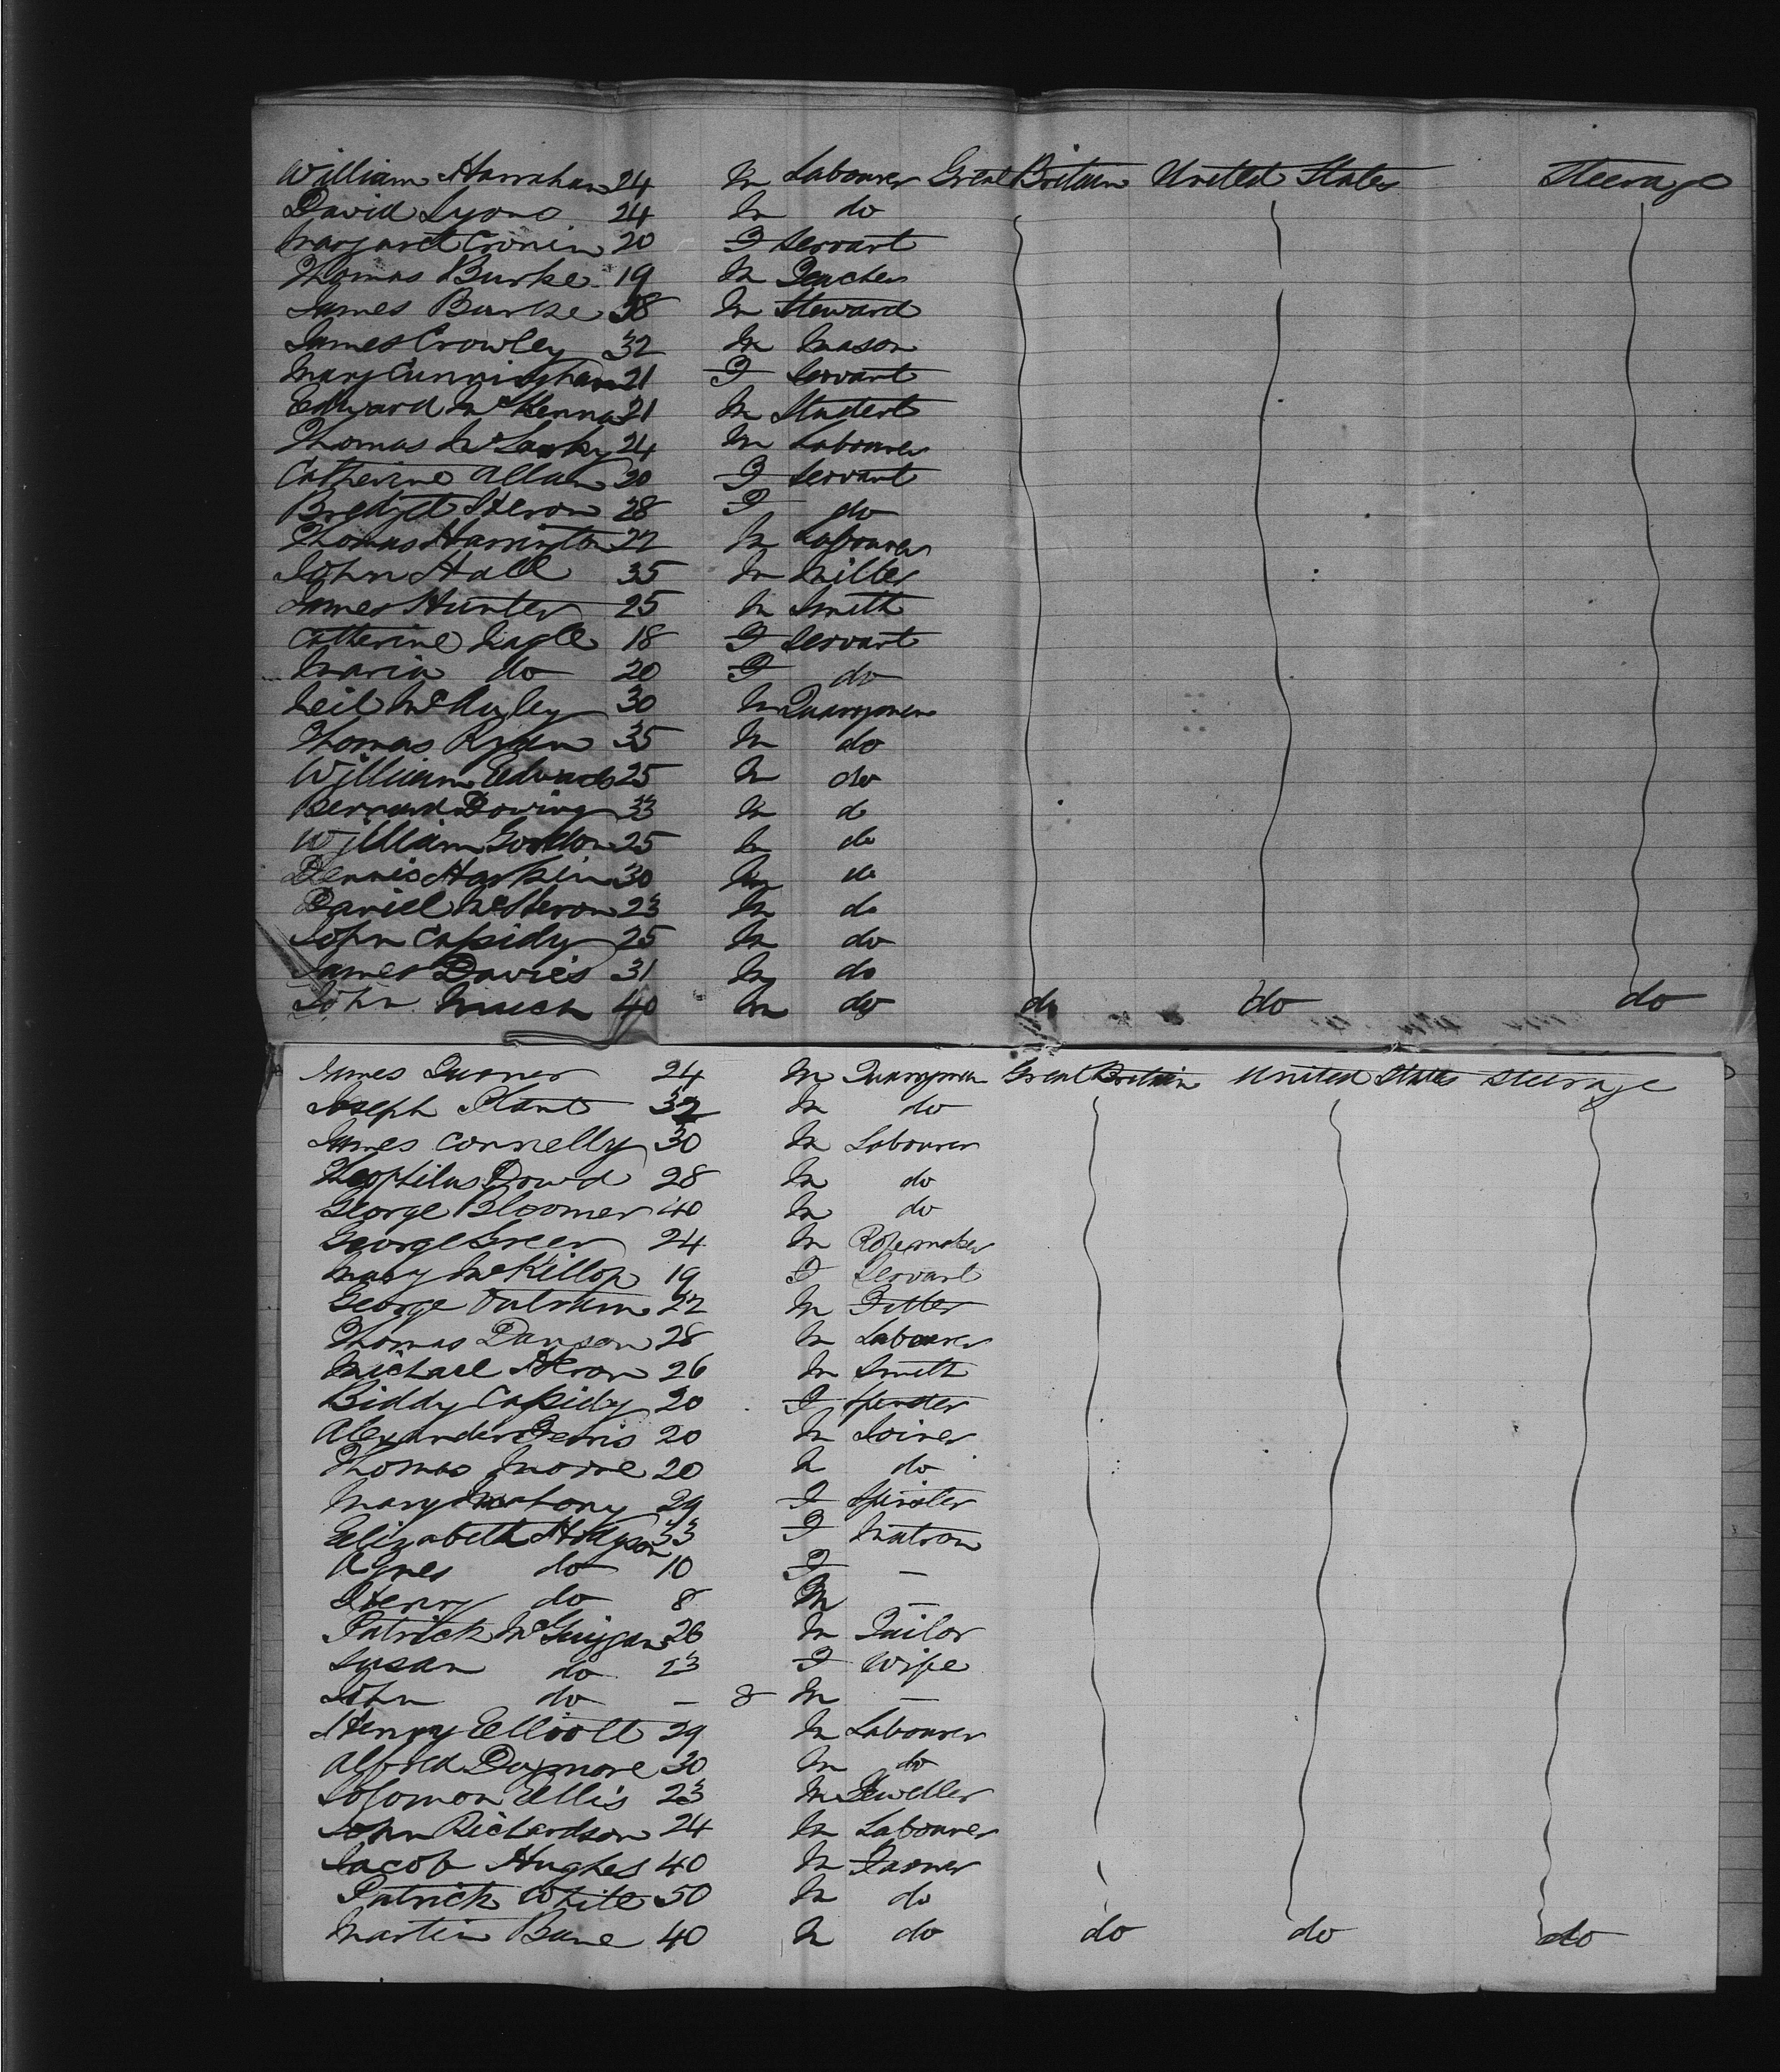 William Hanrahan 24 M Labourer Great Britain United States Steerage
David Lyons 24 M do
Margaret Cronin 20 F Servant
Thomas Burke 19 M Teacher
James Burke 38 M Steward
James Crowley 32 M Mason
Mary Cunningham 21 F Servant
Edward McKenna 21 M Student
Thomas 24 M Labourer
Catherine Allan 20 F Servant
Bredget Heron 28 F do
Thomas Harrington 22 M Labourer
John Hall 35 M Miller
James Hunter 25 M Smith
Catherine Nagle 18 F Servant
Maria do 20 F do
Neil McAuley 30 M Quarryman
Thomas Ryan 35 M do
William Edwards 25 M do
Bernard 33 M do
William Gordon 25 M do
Dennis Harkin 30 M do
Daniel McHeron 23 M do
John Cassidy 25 M do
James Davies 31 M do
John 40 M do do do do
James Turner 24 M Quarryman Great Britain United States Steerage
Joseph Plant 32 M do
James Connelly 30 M Labourer
Theophilus Dowd 28 M do
George Bloomer 40 M do
George Greer 24 M Ropemaker
Mary McKillop 19 F Servant
George Outram 22 M Fitter
Thomas Dawson 28 M Labourer
Michael Heron 26 M Smith
Biddy Cassidy 20 F Spinster
Alexander 20 M Joiner
Thomas Moore 20 M do
Mary Mahony 29 F Spinster
Elizabeth Hodgson 33 F Matron
Agnes do 10 F —
Henry do 8 M —
Patrick McGuiggan 26 M Tailor
Susan do 23 F Wife
John do — 8 M —
Henry Elliott 29 M Labourer
Alfred 30 M do
Solomon Ellis 23 M Jeweller
John Richardson 24 M Labourer
Jacob Hughes 40 M Farmer
Patrick White 50 M do
Martin Bane 40 M do do do do